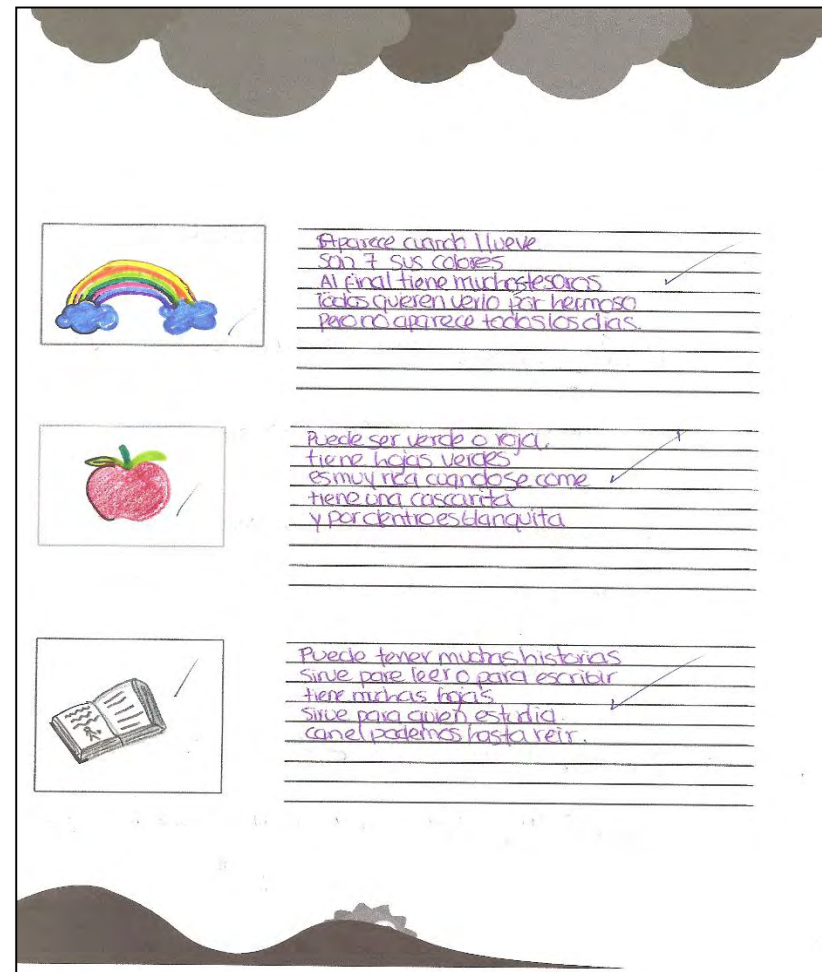 Aparece cuando llueve
son 7 sus colores
Al final tiene muchos tesoros
todos quieren verlo por hermoso
pero no aparece todos los dias.
Puede ser verde o roja.
tiene hojas verdes
es muy rica cuando se come
tiene una cascarita
y por dentro es blanquita
Puede tener muchas historias
sirve para leer o para escribir
tiene muchas hojas
sirve para quien estudia.
con el podemos hasta reir.